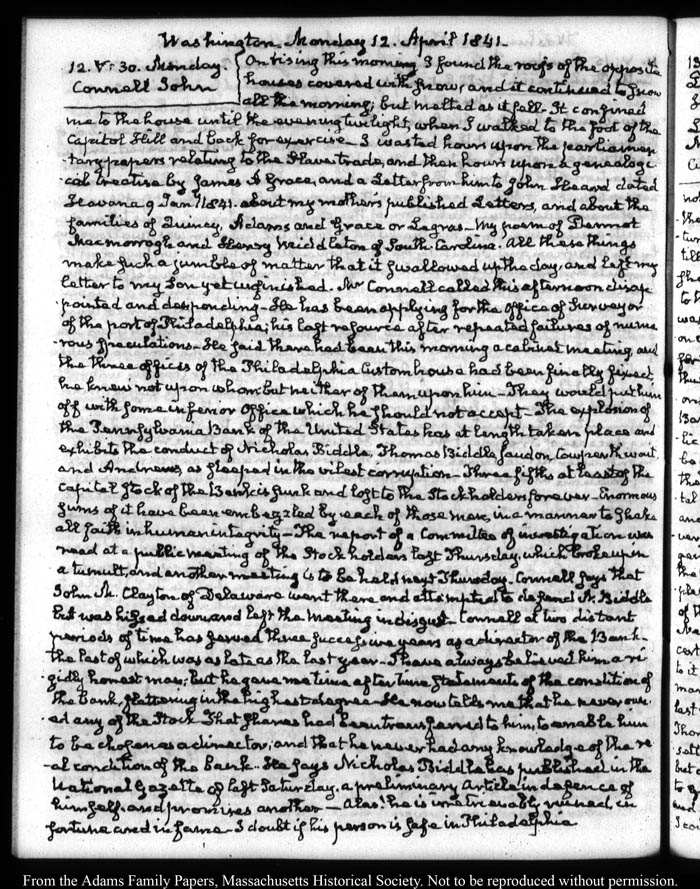 Washington Monday 12. April 1841.
12. V: 30. Monday.
Connell John
On rising this morning I found the roofs of the opposite
houses covered with snow, and it continued to snow
all the morning; but melted as it fell. It confined
me to the house until the evening twilight, when I walked to the foot of the
Capitol Hill and back for exercise. I wasted hours upon the parliamen-
tary papers relating to the Slave trade, and then hours upon a genealogi-
cal treatise by James A Grace, and a Letter from him to John Heard dated
Havana 9 Jany 1841. about my mother's published Letters, and about the
families of Quincy, Adams and Grace or Legras_ My poem of Dermot
Macmorrogh and Henry Middleton of South Carolina. All these things
make such a jumble of matter that it swallowed up the day, and left my
letter to my Son yet unfinished. Mr Connell called this afternoon disap-
pointed and desponding_ He has been applying for the office of Surveyor
of the port of Philadelphia; his last resource after repeated failures of nume-
rous speculations_ He said there had been this morning a cabinet meeting, and
the three offices of the Philadelphia Custom house had been finally fixed;
he knew not upon whom but neither of them upon him_ They would put him
off with some inferior Office which he should not accept_ The explosion of
the Pennsylvania Bank of the United States has at length taken place and
exhibits the conduct of Nicholas Biddle, Thomas Biddle Jaudon, Cowperthwait,
and Andrews, as steeped in the vilest corruption_ Three fifths at least of the
capital Stock of the Bank is sunk and lost to the Stockholders forever_ Enormous
sums of it have been embezzled by each of those men, in a manner to shake
all faith in human integrity_ The report of a Committee of investigation was
read at a public meeting of the Stockholders last Thursday, which broke up in
a tumult, and another meeting is to be held next Thursday. Connell says that
John M. Clayton of Delaware went there and attempted to defend N. Biddle
but was hissed down and left the Meeting in disgust_ Connell at two distant
periods of time has served three successive years as a director of the Bank_
the last of which was as late as the last year_ I have always believed him a ri-
gidly honest man; but he gave me time after time statements of the condition of
the Bank, flattering in the highest degree_ He now tells me that he never own-
ed any of the Stock That shares had been transferred to him, to enable him
to be chosen as a director, and that he never had any knowledge of the re-
al condition of the Bank_ He says Nicholas Biddle has published in the
National Gazette of last Saturday, a preliminary Article in defence of
himself, and promises another_ Alas! he is irretrievably ruined, in
fortune and in fame_ I doubt if his person is safe in Philadelphia
From the Adams Family Papers, Massachusetts Historical Society. Not to be reproduced without permission.